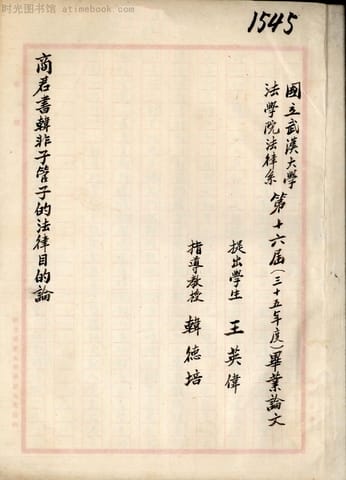 时光图书馆 - atimebook.com
1545
國立武漢大學
法學院法律系
第十六屆(三十五年度)畢業論文
提出學生 王英偉
指導教授 韓德培
商君書韓非子管子的法律目的論